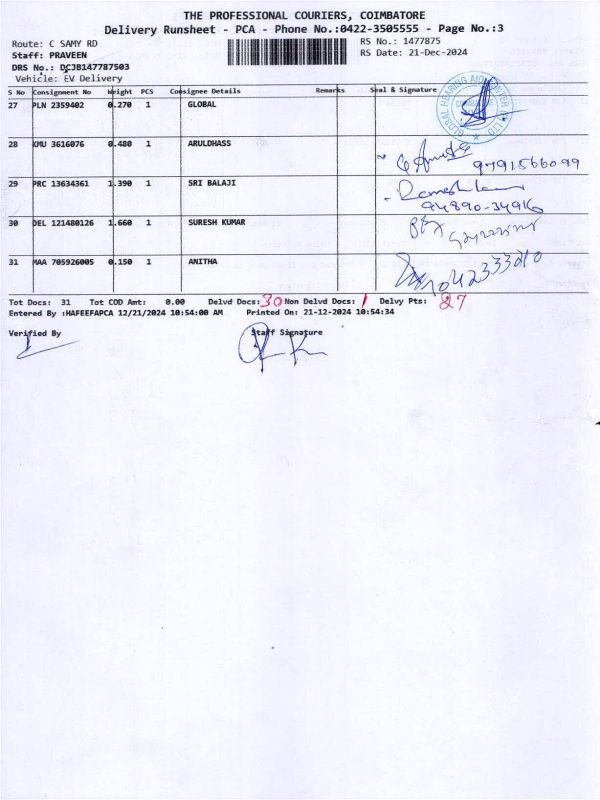 THE PROFESSIONAL COURIERS, COIMBATORE
Delivery Runsheet - PCA - Phone No.:0422-3505555 - Page No.:3
Route: C SAMY RD
RS No.: 1477875
Staff: PRAVEEN
RS Date: 21-Dec-2024
DRS No.: DCJB147787503
Vehicle: EV Delivery
S No Consignment No Weight PCS Consignee Details Remarks Seal & Signature
27 PLN 2359402 0.270 1 GLOBAL
GLOBAL HEARING AID CENTER
28 KMU 3616076 0.480 1 ARULDHASS
9791566099
29 PRC 13634361 1.390 1 SRI BALAJI
30 DEL 121480126 1.660 1 SURESH KUMAR
31 MAA 705926005 0.150 1 ANITHA
Tot Docs: 31 Tot COD Amt: 0.00 Delvd Docs: 30 Non Delvd Docs: 1 Delvy Pts: 27
Entered By :HAFEEFAPCA 12/21/2024 10:54:00 AM Printed On: 21-12-2024 10:54:34
Verified By Staff Signature